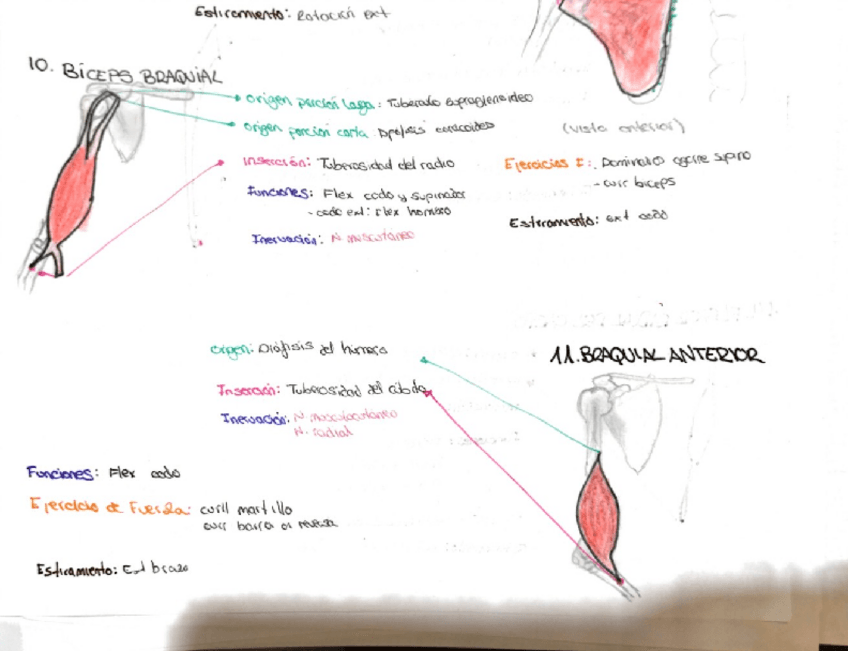 Estiramiento: Rotación ext
10. BÍCEPS BRAQUIAL
origen porción larga: Tuberculo supraglenoideo
origen porción corta: Apófisis coracoides
(vista anterior)
Inserción: Tuberosidad del radio
Ejercicios F: Dominadas agarre supino
- curl biceps
Funciones: Flex codo y supinador
- codo ext: flex húmero
Estiramiento: ext codo
Inervación: N musculáneo
origen: Diáfisis del húmero
11. BRAQUIAL ANTERIOR
Inserción: Tuberosidad del cúbito
Inervación: N musculocutaneo
N. radial
Funciones: Flex codo
Ejercicio de Fuerza: curll martillo
curl barra en reversa
Estiramiento: Ext brazo